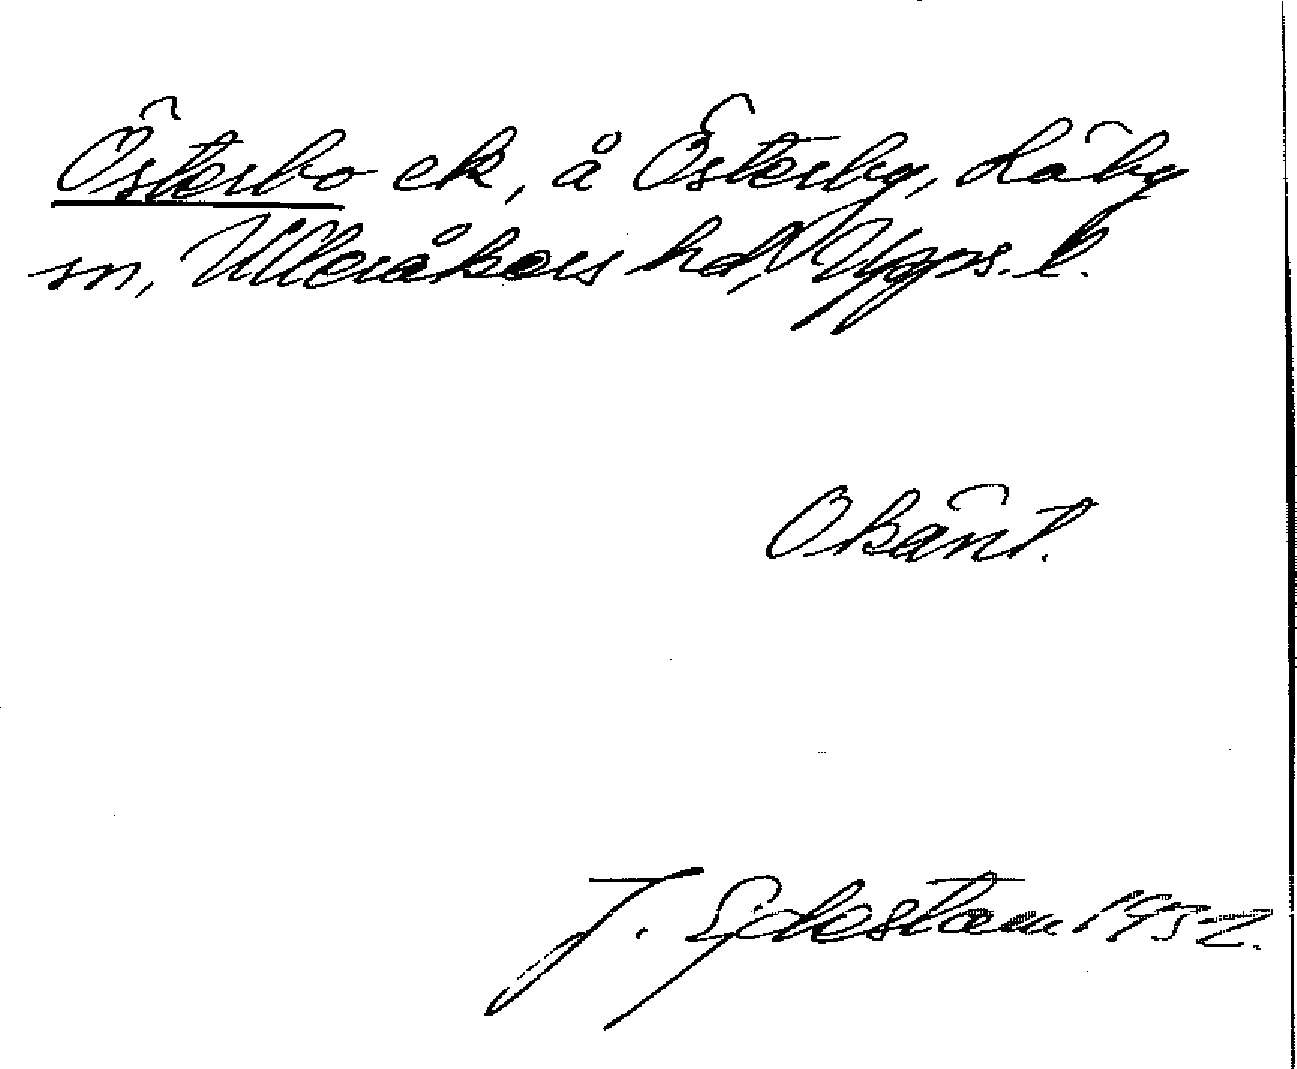 Österbo ek, å Österby, Läby
sn, Ulleråkers hd, Upps. l.
Okänt.
J. Sjdestam 1952.